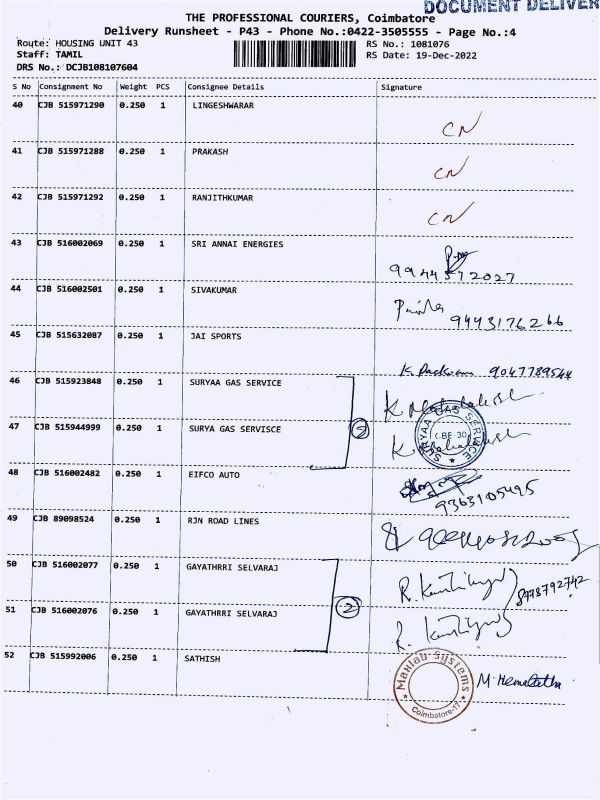 DOCUMENT DELIVER
THE PROFESSIONAL COURIERS, Coimbatore
Delivery Runsheet - P43 - Phone No.:0422-3505555 - Page No.:4
Route: HOUSING UNIT 43 RS No.: 1081076
Staff: TAMIL RS Date: 19-Dec-2022
DRS No.: DCJB108107604
S No Consignment No Weight PCS Consignee Details Signature
40 CJB 515971290 0.250 1 LINGESHWARAR CN
41 CJB 515971288 0.250 1 PRAKASH CN
42 CJB 515971292 0.250 1 RANJITHKUMAR CN
43 CJB 516002069 0.250 1 SRI ANNAI ENERGIES
9944372027
44 CJB 516002501 0.250 1 SIVAKUMAR
9443176266
45 CJB 515632087 0.250 1 JAI SPORTS
K. 9047789544
46 CJB 515923848 0.250 1 SURYAA GAS SERVICE K
47 CJB 515944999 0.250 1 SURYA GAS SERVISCE K
2
SURYAA GAS SERVICE
CBE-30
48 CJB 516002482 0.250 1 EIFCO AUTO
9363105495
49 CJB 89098524 0.250 1 RJN ROAD LINES
50 CJB 516002077 0.250 1 GAYATHRRI SELVARAJ R.
2 8778792742
51 CJB 516002076 0.250 1 GAYATHRRI SELVARAJ R.
52 CJB 515992006 0.250 1 SATHISH
Maxlab Systems
Coimbatore-17
M. Hemalatha